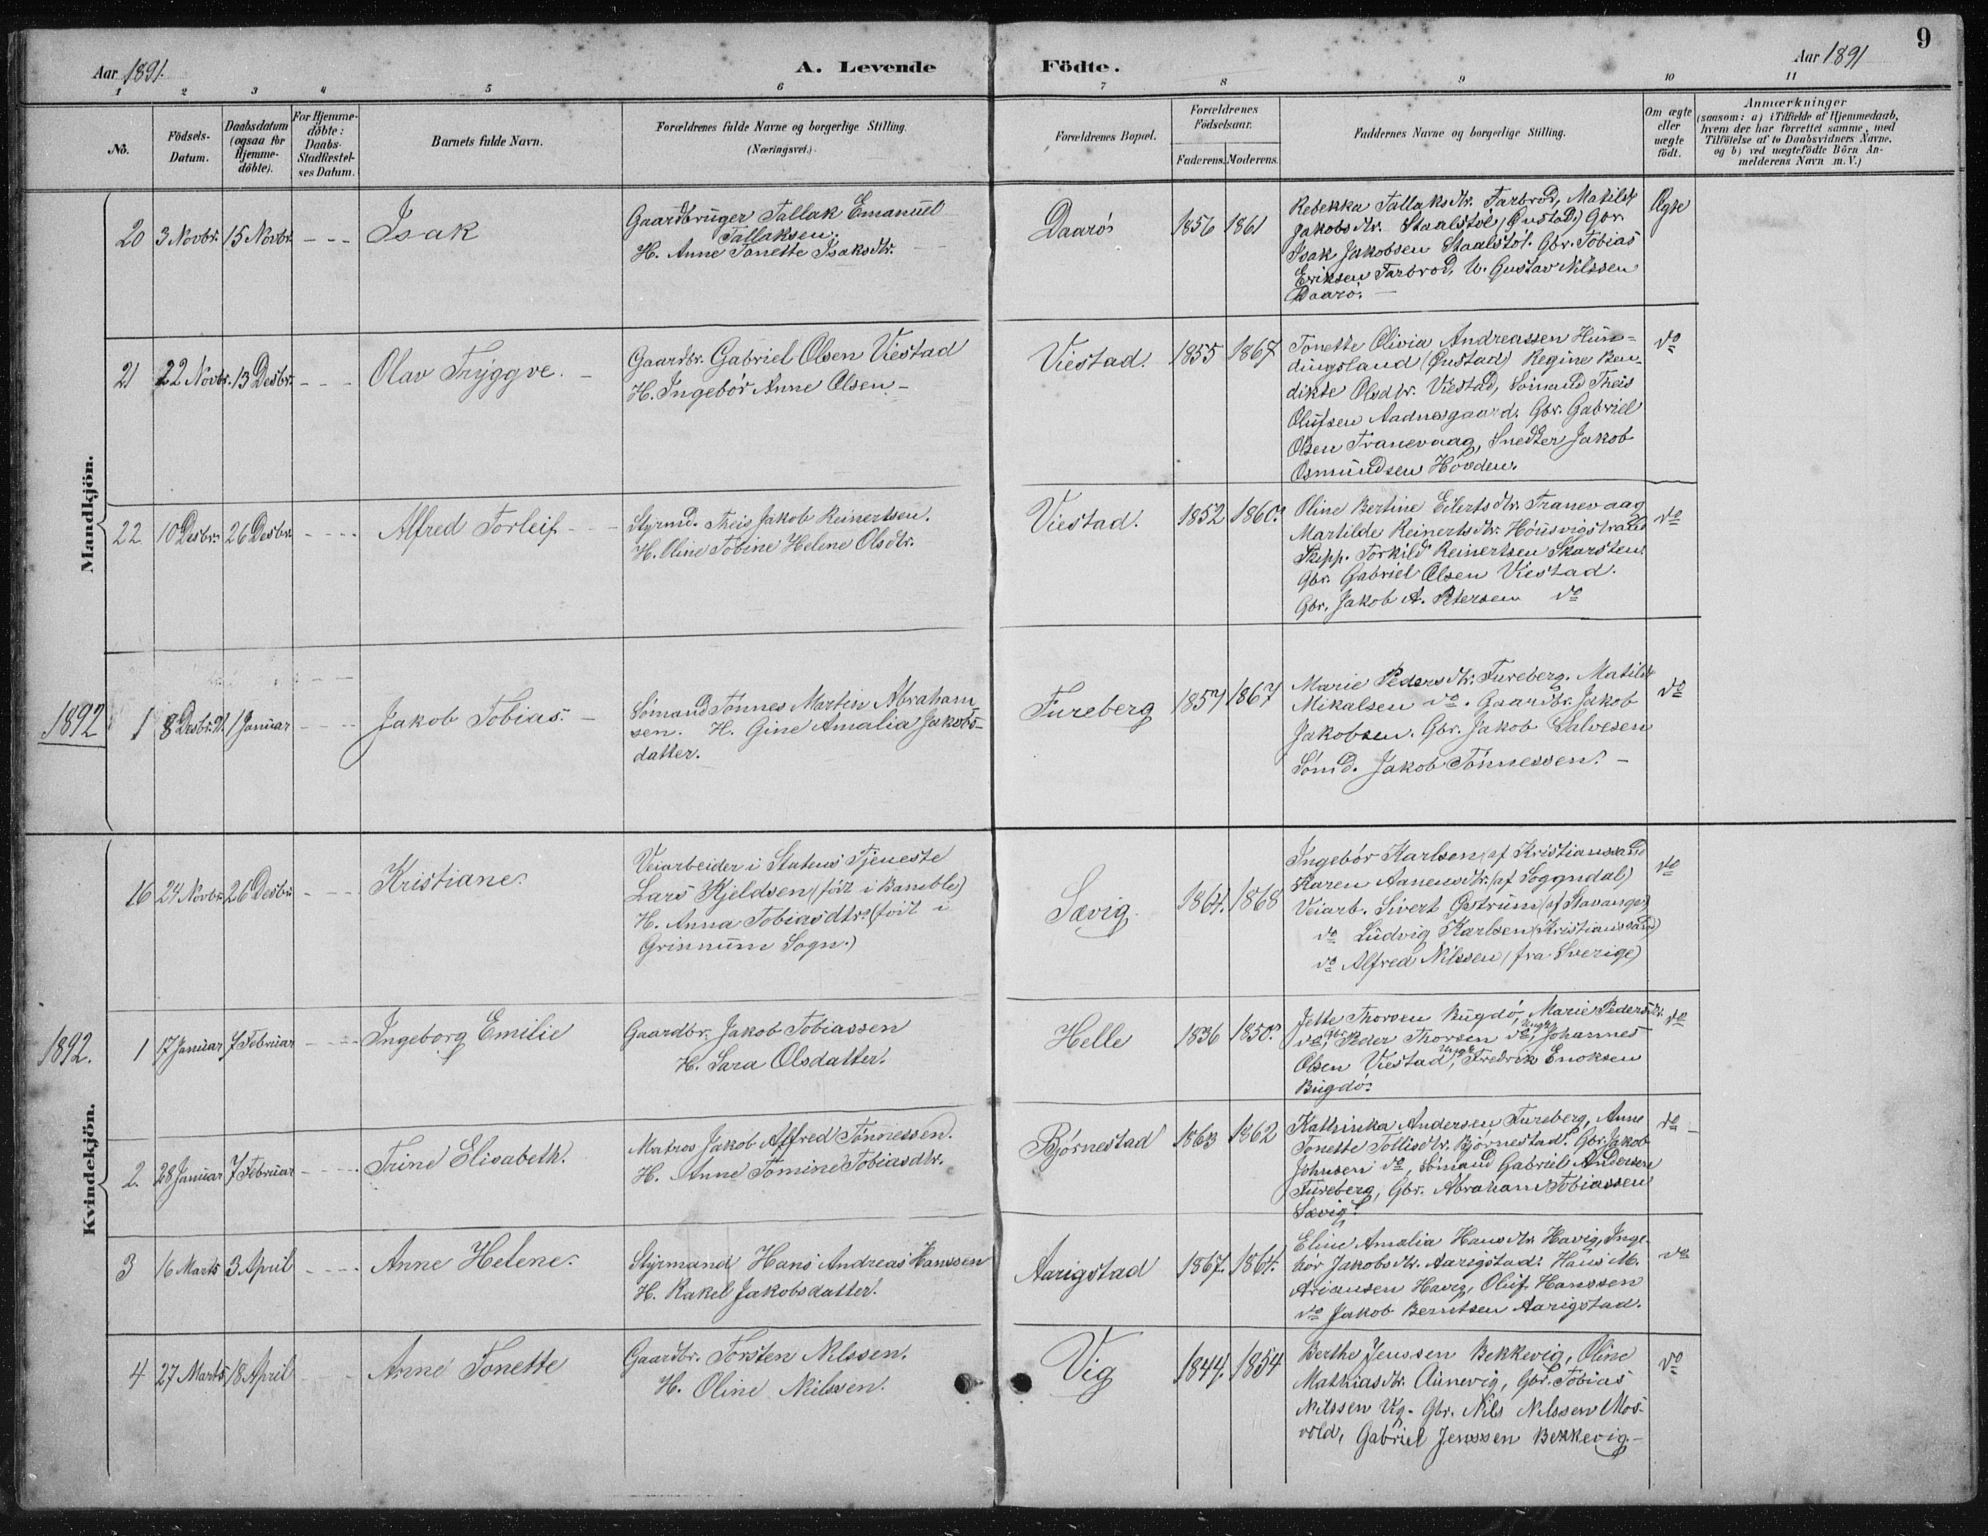 9
Aar 1891.
A. Levende
Födte.
Aar 1891
1 2 3 4 5 6 7 8 9 10 11
No.
Födsels-
Datum.
Daabsdatum
(ogsaa for
Hjemme-
döbte).
For Hjemme-
döbte:
Daabs-
Stadfæstel-
ses Datum.
Barnets fulde Navn.
Forældrenes fulde Navne og borgerlige Stilling.
(Næringsvei.)
Forældrenes Bopæl.
Forældrenes
Födselsaar.
Faderens. Moderens.
Faddernes Navne og borgerlige Stilling.
Om ægte
eller
uægte
födt.
Anmærkninger
(saasom: a) i Tilfælde af Hjemmedaab,
hvem der har forrettet samme, med
Tilföielse af to Daabsvidners Navne,
og b) ved uægtefödte Börn An-
melderens Navn m. V.)
Mandkjön.
20 3 Novbr. 15 Novbr. - - - Isak
Gaardbruger Tallak Emanuel
Tallaksen.
H. Anne Tonette Isaksdtr.
Daarø. 1856 1861
Rebekka Tallaksdtr. Farbrod, Matilde
Jakobsdtr. Staalstøl (Gustad) Gbr.
Isak Jakobsen Staalstøl. Gbr. Tobias
Eriksen Farbrod, U. Gustav Nilssen
Daarø. -
Ægte
21 22 Novbr. 13 Desbr. - - - Olav Trÿggve. -
Gaardbr. Gabriel Olsen Viestad
H. Ingebør Anne Olsen -
Viestad. 1855 1867
Tonette Olivia Andreassen Hun-
dingsland (Gustad) Regine Ben-
dikte Olsdtr. Viestad, Sömand Theis
Olufsen Aadnesgaard. Gbr. Gabriel
Olsen Tranevaag, Snedker Jakob
Osmundsen Høvden.
do
22 10 Desbr. 26 Desbr. - - - Alfred Torleif -
Styrmd. Theis Jakob Reinertsen.
H. Oline Tobine Helene Olsdtr.
Viestad. 1852 1860.
Oline Bertine Eilertsdtr. Tranevaag
Martilde Reinertsdtr. Høusvigstrand
Skipp. Torkild Reinertsen Skarsten.
Gbr. Gabriel Olsen Viestad.
Gbr. Jakob A. Petersen do
do
1892 1 8 Desbr. 91. 1 Januar - - - Jakob Tobias. -
Sømand Tønnes Martin Abraham
sen. H. Gine Amalia Jakobs-
datter.
Fureberg 1857 1867
Marie Pedersdtr. Fureberg. Matilde
Mikalsen do. Gaardbr. Jakob
Jakobsen. Gbr. Jakob Salvesen
Sømd. Jakob Tønnessen. -
do
Kvindekjön.
16 24 Novbr. 26 Desbr. - - - Kristiane.
Veiarbeider i Statens Tjeneste
Lars Kjeldsen (født i Bamble)
H. Anna Tobiasdtr. (født i
Grinnum Sogn.)
Sævig. 1864. 1868
Ingebør Karlsen (af Kristianssand
Karen Aanensdtr. (af Soggndal)
Veiarb. Sivert Østrum (af Stavanger)
do Ludvig Karlsen (Kristianssand)
do Alfred Nilssen (fra Sverige)
do
1892. 1 17 Januar 7 Februar - - - Ingeborg Emilie
Gaardbr. Jakob Tobiassen
H. Sara Olsdatter.
Helle 1836 1850.
Jette Thorsen Bugdø, Marie Pedersdtr.
do, Gbr. Peder Thorsen do, Ungk. Johannes
Olsen Viestad, Ungk. Fredrik Enoksen
Bugdø.
do
2. 28 Januar 7 Februar - - - Trine Elisabeth.
Matros Jakob Alfred Tønnessen.
H. Anne Tomine Tobiasdtr.
Bjørnestad 1863 1862
Kathinka Andersen Fureberg, Anne
Tonette Tollisdtr. Bjørnestad. Gbr. Jakob
Johnsen do, Sømand Gabriel Andersen
Fureberg, Gbr. Abraham Tobiassen
Sævig.
do -
3 16 Marts 3 April - - - Anne Helene.
Styrmand Hans Andreas Hanssen
H. Rakel Jakobsdatter.
Aarigstad 1867. 1864.
Eline Amalia Hansdtr. Havig, Inge-
bør Jakobsdtr. Aarigstad. Hans M.
Ariansen Havig, Oluf Hanssen
do Jakob Berntsen Aarigstad.
do
4 27 Marts 18 April - - - Anne Tonette
Gaardbr. Torsten Nilssen.
H. Oline Nilssen.
Vig 1844. 1854
Berthe Jenssen Bekkevig, Oline
Mathiasdtr. Aunevig, Gbr. Tobias
Nilssen Vig. Gbr. Nils Nilssen Mos-
vold, Gabriel Jenssen Bekkevig. -
do